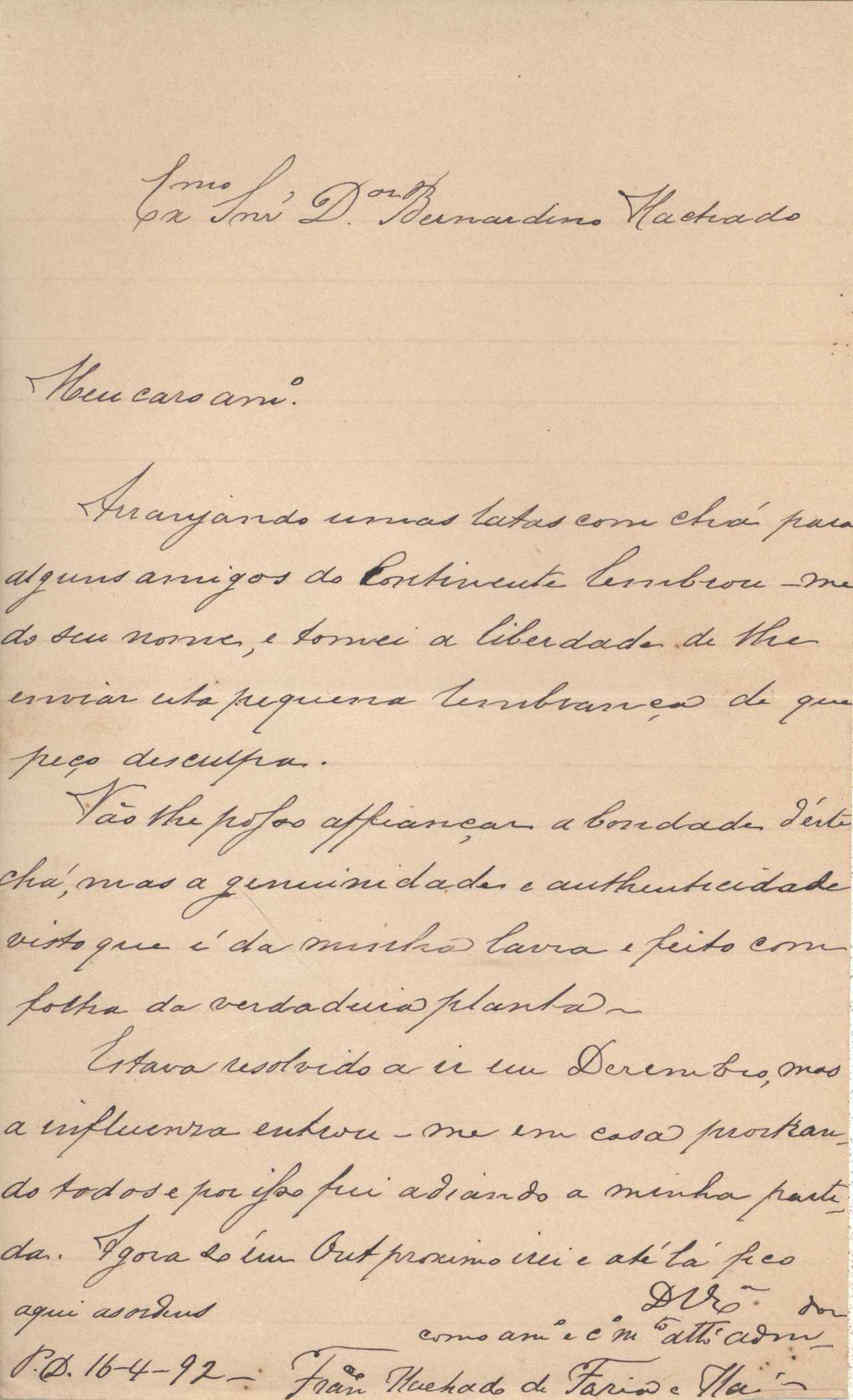 Exmo Snr Dor Bernardino Machado
Meu caro amo.
Arranjando umas latas com chá para
alguns amigos do Continente lembrou-me
do seu nome, e tomei a liberdade de lhe
enviar esta pequena lembrança de que
peço desculpa.
Não lhe posso affiançar a bondade d'éste
chá, mas a genuinidade e authenticidade
visto que é da minha lavra e feito com
folha da verdadeira planta—
Estava resolvido a ir em Dezembro, mas
a influenza entrou-me em casa prostran-
do todos e por isso fui adiando a minha parti-
da. Agora só em Out proximo irei e até lá fico
aqui as ordens
D V Exa
como amo e co mto atto admdor
P.D. 16-4-92— Franco Machado de Faria e Maia